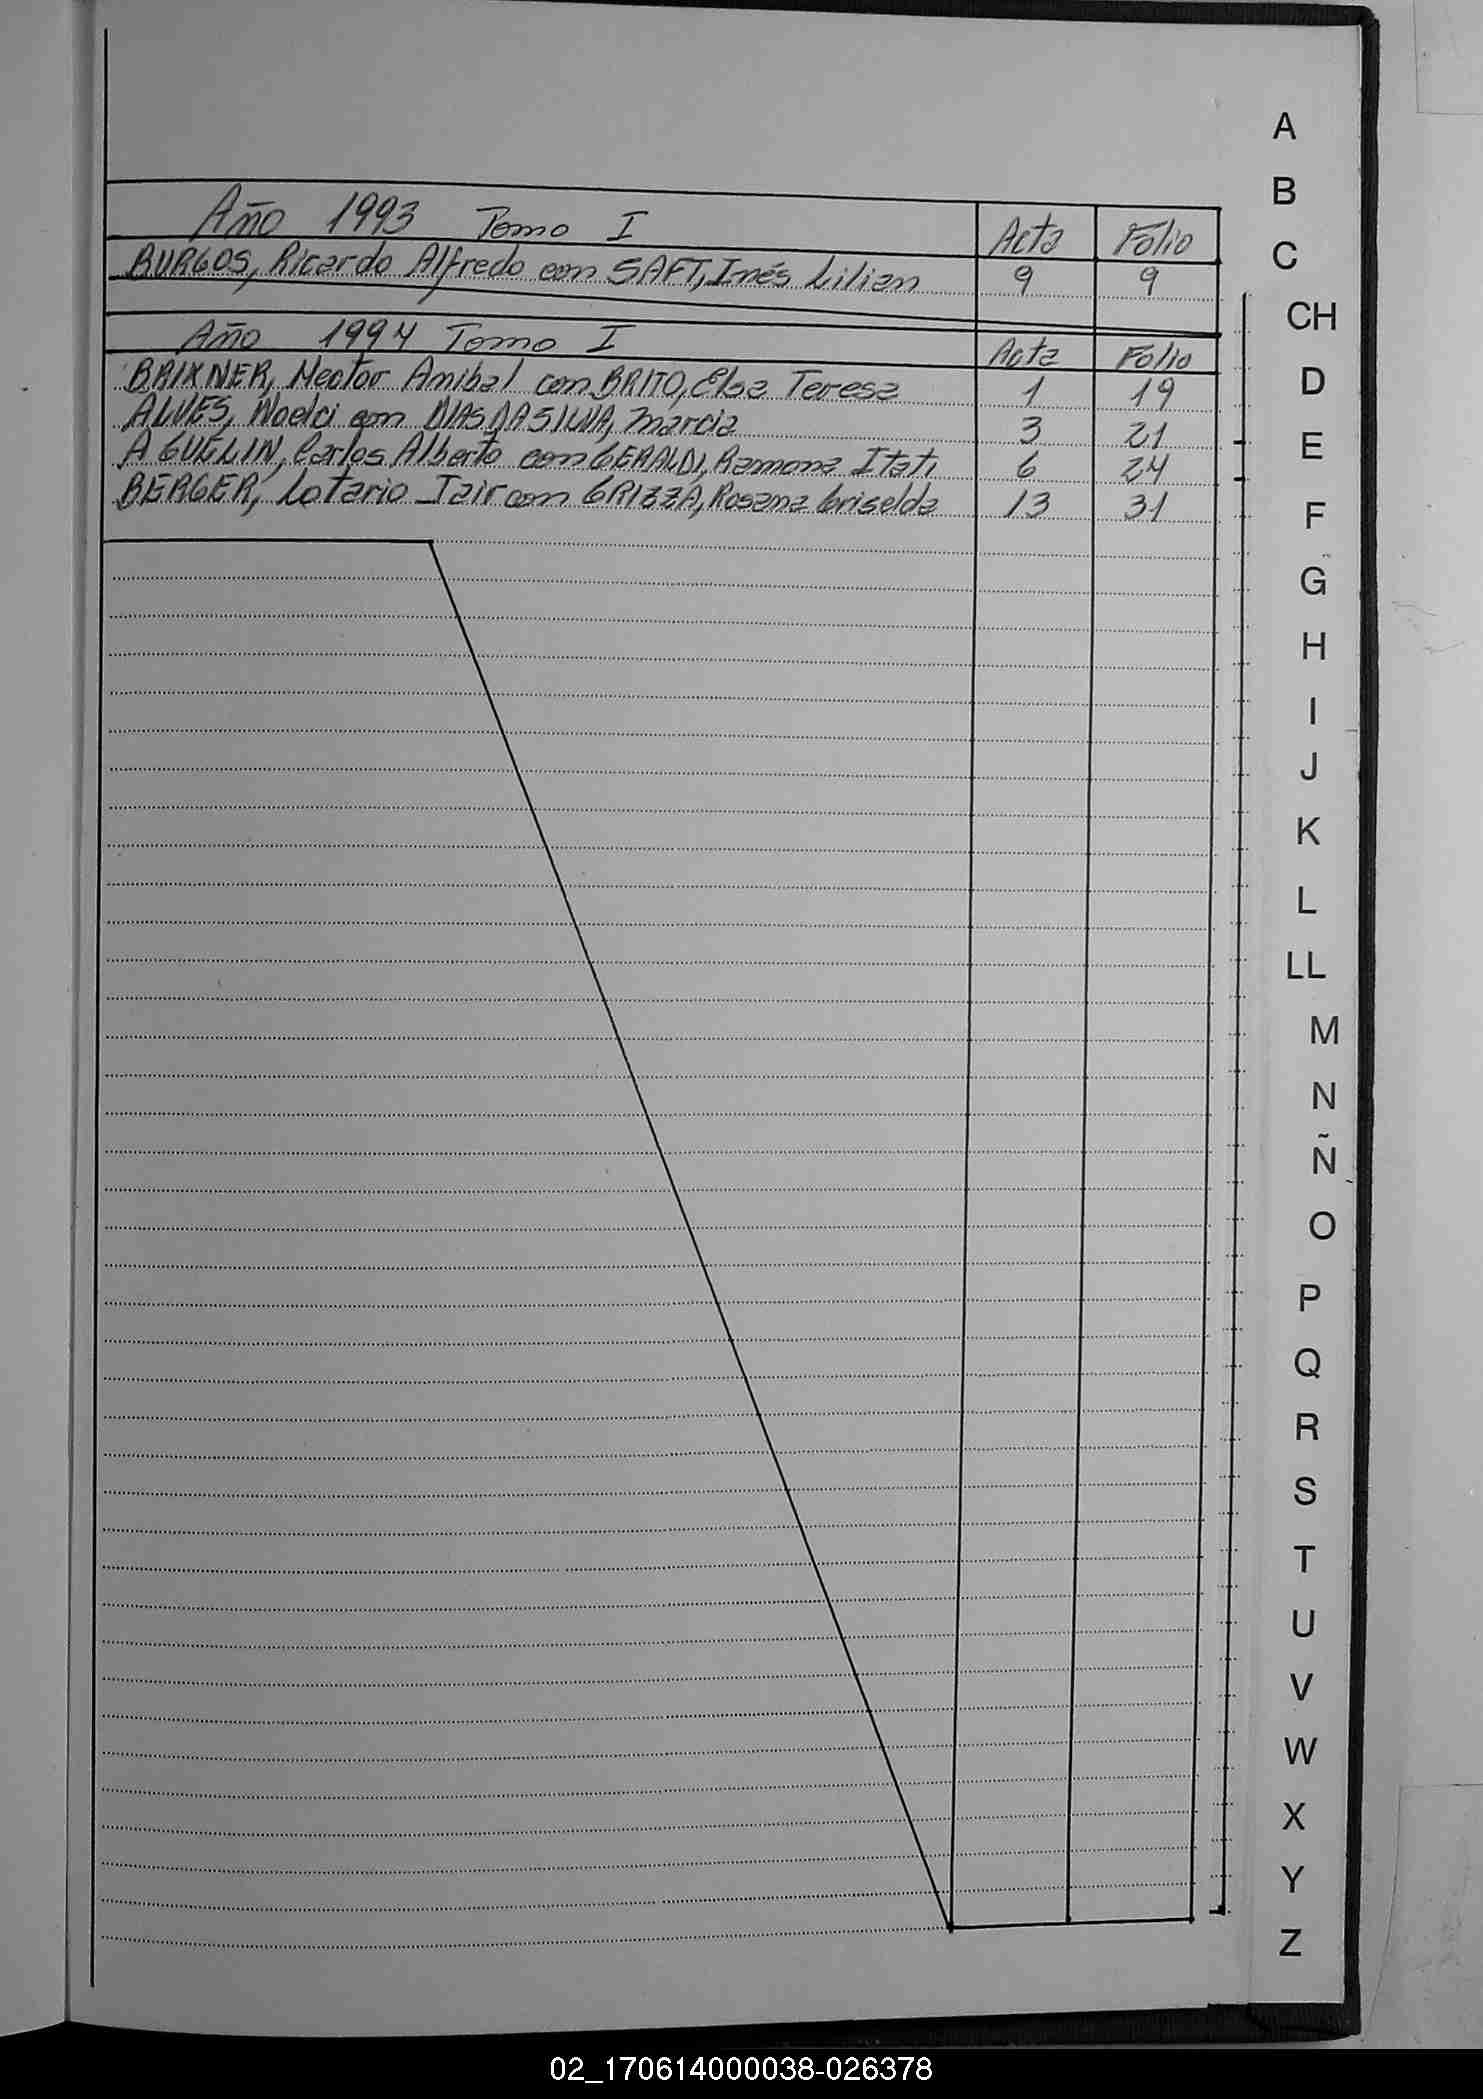 Año 1993 Tomo I Acta Folio
BURGOS, Ricardo Alfredo con SAFT, Inés Lilian 9 9
Año 1994 Tomo I Acta Folio
BRIXNER, Hector Anibal con BRITO, Elsa Teresa 1 19
ALVES, Noelci con DIAS DA SILVA, Marcia 3 21
AGUELIN, Carlos Alberto con GERALDI, Ramona Itati 6 24
BERGER, Lotario Jair con GRIZZA, Rosana Griselda 13 31
A
B
C
CH
D
E
F
G
H
I
J
K
L
LL
M
N
Ñ
O
P
Q
R
S
T
U
V
W
X
Y
Z
02_170614000038-026378